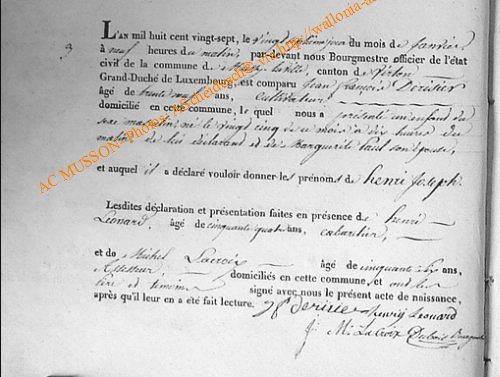 3
L'AN mil huit cent vingt-sept, le vingt jour du mois de janvier
à neuf heures du matin, par-devant nous Bourgmestre officier de l'état
civil de la commune de Mussy la ville, canton de Virton
Grand-Duché de Luxembourg, est comparu Jean françois Derisier
âgé de trente neuf ans, Cultivateur
domicilié en cette commune, le quel nous a présenté un enfant du
sexe masculin, né le vingt cinq de ce mois à dix heures du
matin de lui déclarant et de Marguerite son épouse,
et auquel il a déclaré vouloir donner les prénoms de henri Joseph
Lesdites déclaration et présentation faites en présence de henri
Leonard, âgé de cinquante quatre ans, cabartier,
et de Michel Lacroix âgé de cinquante ans,
Assesseur, domiciliés en cette commune, et ont les
père et témoins signé avec nous le présent acte de naissance,
après qu'il leur en a été fait lecture. derisier henry leonard
M. LaCroix
AC MUSSON-Photos